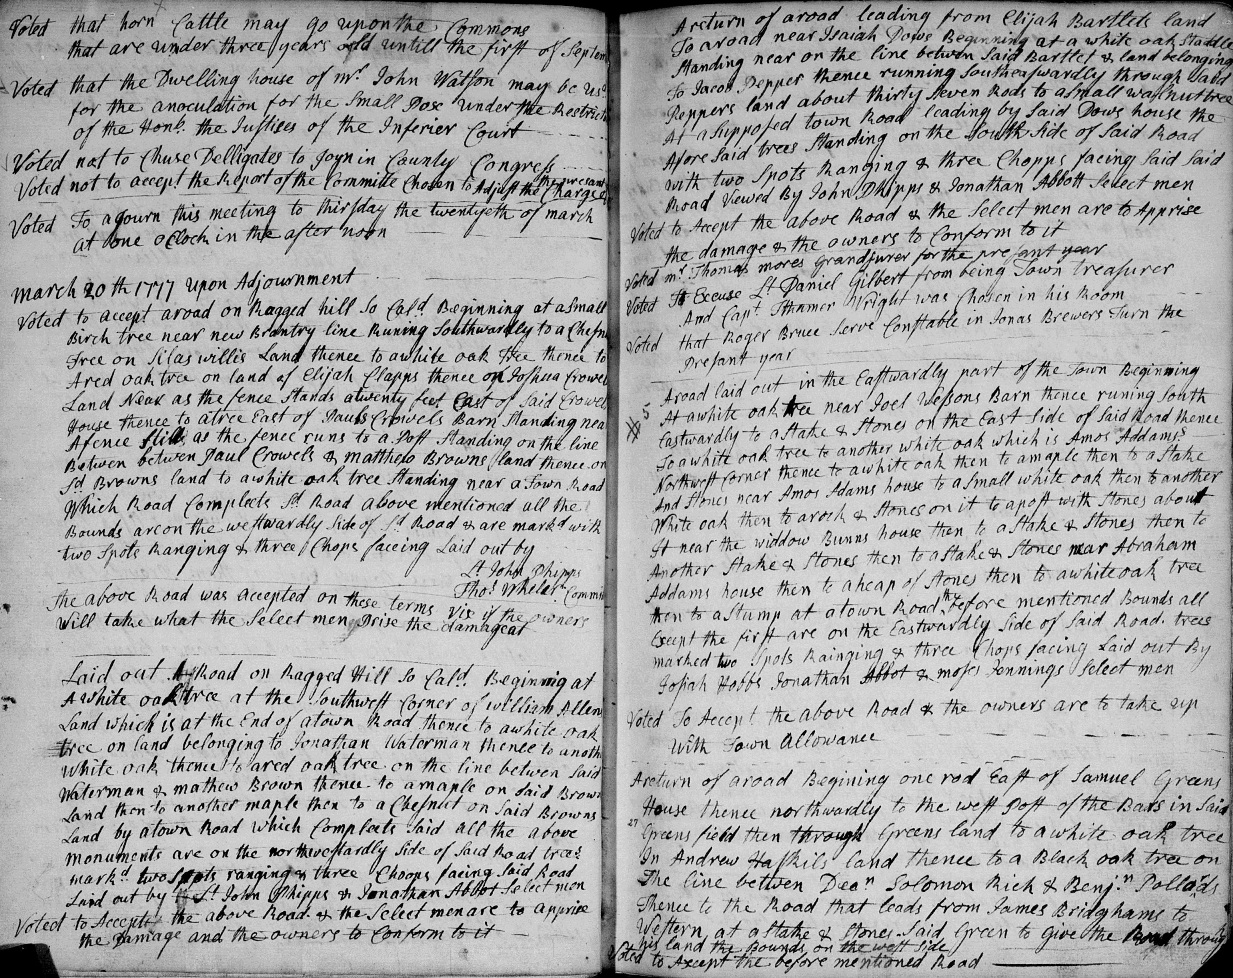 Voted that horn Cattle may go upon the Commons
that are under three years old untill the first of Septem
Voted that the Dwelling house of mr John Watson may be us
for the anoculation for the Small Pose under the Restrict
of the Honb. the Justises of the Inferier Court
Voted not to Chuse Delligates to Joyn in County Congress
Voted not to accept the Report of the Committe Chosen to Adjust the presant Charges
Voted To ajourn this meeting to thirsday the twentyeth of march
at one o Clock in the after noon
March 20th 1777 upon Adjournment
Voted to accept a road on Ragged hill So Cald. Beginning at a Small
Birch tree near new Brantry line Runing Southwardly to a Chesn
Tree on Silas willis Land thence to a white oak Tree thence to
A red oak tree on land of Elijah Clapps thence on Joshua Crowel
Land Near as the fence Stands a twenty feet East of Said Crowel
House thence to a tree East of Pauls Crowels Barn Standing nea
A fence Still as the fence runs to a Post Standing on the line
Betwen betwen Paul Crowels & matthew Browns land thence on
Sd. Browns land to a white oak tree Standing near a Town Road
Which Road Compleets Sd. Road above mentioned all the
Bounds are on the westwardly Side of Sd. Road & are markd with
two Spots Ranging & three Chops faceing Laid out by
Lt. John Phipps
Thos. Wheler Comm
The above Road was accepted on these terms Viz if the owners
Will take what the Select men Prise the damage at
Laid out A Road on Ragged Hill So Cald. Beginning at
A white oak tree at the Southwest Corner of William Allen
Land which is at the End of a town Road thence to a white oak
tree on land belonging to Jonathan Waterman thence to anoth
White oak thence to a red oak tree on the line betwen Said
Waterman & mathew Brown thence to a maple on Said Brown
Land then to another maple then to a Chesnut on Said Browns
Land by a town Road Which Compleets Said all the above
monuments are on the northwestardly Side of Said Road trees
markd. two Spots ranging & three Choops faceing Said Road
Laid out by Lt. John Phipps & Jonathan Abbot Select men
Voted to Accept the above Road & the Select men are to apprise
the Damage and the owners to Conform to it
A return of a road leading from Elijah Bartlets land
To a road near Isaiah Dows Beginning at a white oak Staddle
Standing near on the line betwen Said Bartlet & land belonging
To Jacob Pepper thence running Southeastwardly through Said
Peppers land about thirty Seven Rods to a Small walnut tree
At a Supposed town Road leading by Said Dows house the
Afore Said trees Standing on the South Side of Said Road
With two Spots Ranging & three Chopps facing Said Said
Road Vewed By John Phipps & Jonathan Abbott Select men
Voted to Accept the Above Road & the Select men are to Apprise
the damage & the owners to Conform to it
Voted mr. Thomas mores Grandjurer for the presant year
Voted To Excuse Lt Daniel Gilbert from being Town treasurer
And Capt. Ithamer Wright was Chosen in his Room
Voted that Roger Bruce Serve Constable in Jonas Brewers Turn the
Presant year
A road laid out in the Eastwardly part of the Town Beginning
At a white oak tree near Joel Wesons Barn thence runing South
Eastwardly to a Stake & Stones on the East Side of Said Road thence
To a white oak tree to another white oak which is Amos Addams
Northwest Corner thence to a white oak then to a maple then to a Stake
And Stones near Amos Adams house to a Small white oak then to another
White oak then to a rock & Stones on it to a post with Stones about
It near the widdow Bunns house then to a Stake & Stones then to
Another Stake & Stones then to a Stake & Stones near Abraham
Addams house then to a heap of Stones then to a white oak tree
then to a Stump at a town Road the before mentioned Bounds all
Except the first are on the Eastwardly Side of Said Road. trees
marked two Spots Rainging & three Chops facing Laid out By
Josiah Hobbs Jonathan Abbot & moses Jennings Select men
Voted To Accept the above Road & the owners are to take up
With Town Allowance
A return of a road Begining one rod East of Samuel Greens
House thence northwardly to the west Post of the Bars in Said
27 Greens field then through Greens land to a white oak tree
In Andrew Haskils land thence to a Black oak tree on
The line betwen Deon Solomon Rich & Benjn. Pollads
Thence to the Road that leads from James Bridghams to
Western at a Stake & Stones Said Green to Give the Road throug
his land the Bounds on the west Side
Voted to Axcept the before mentioned Road